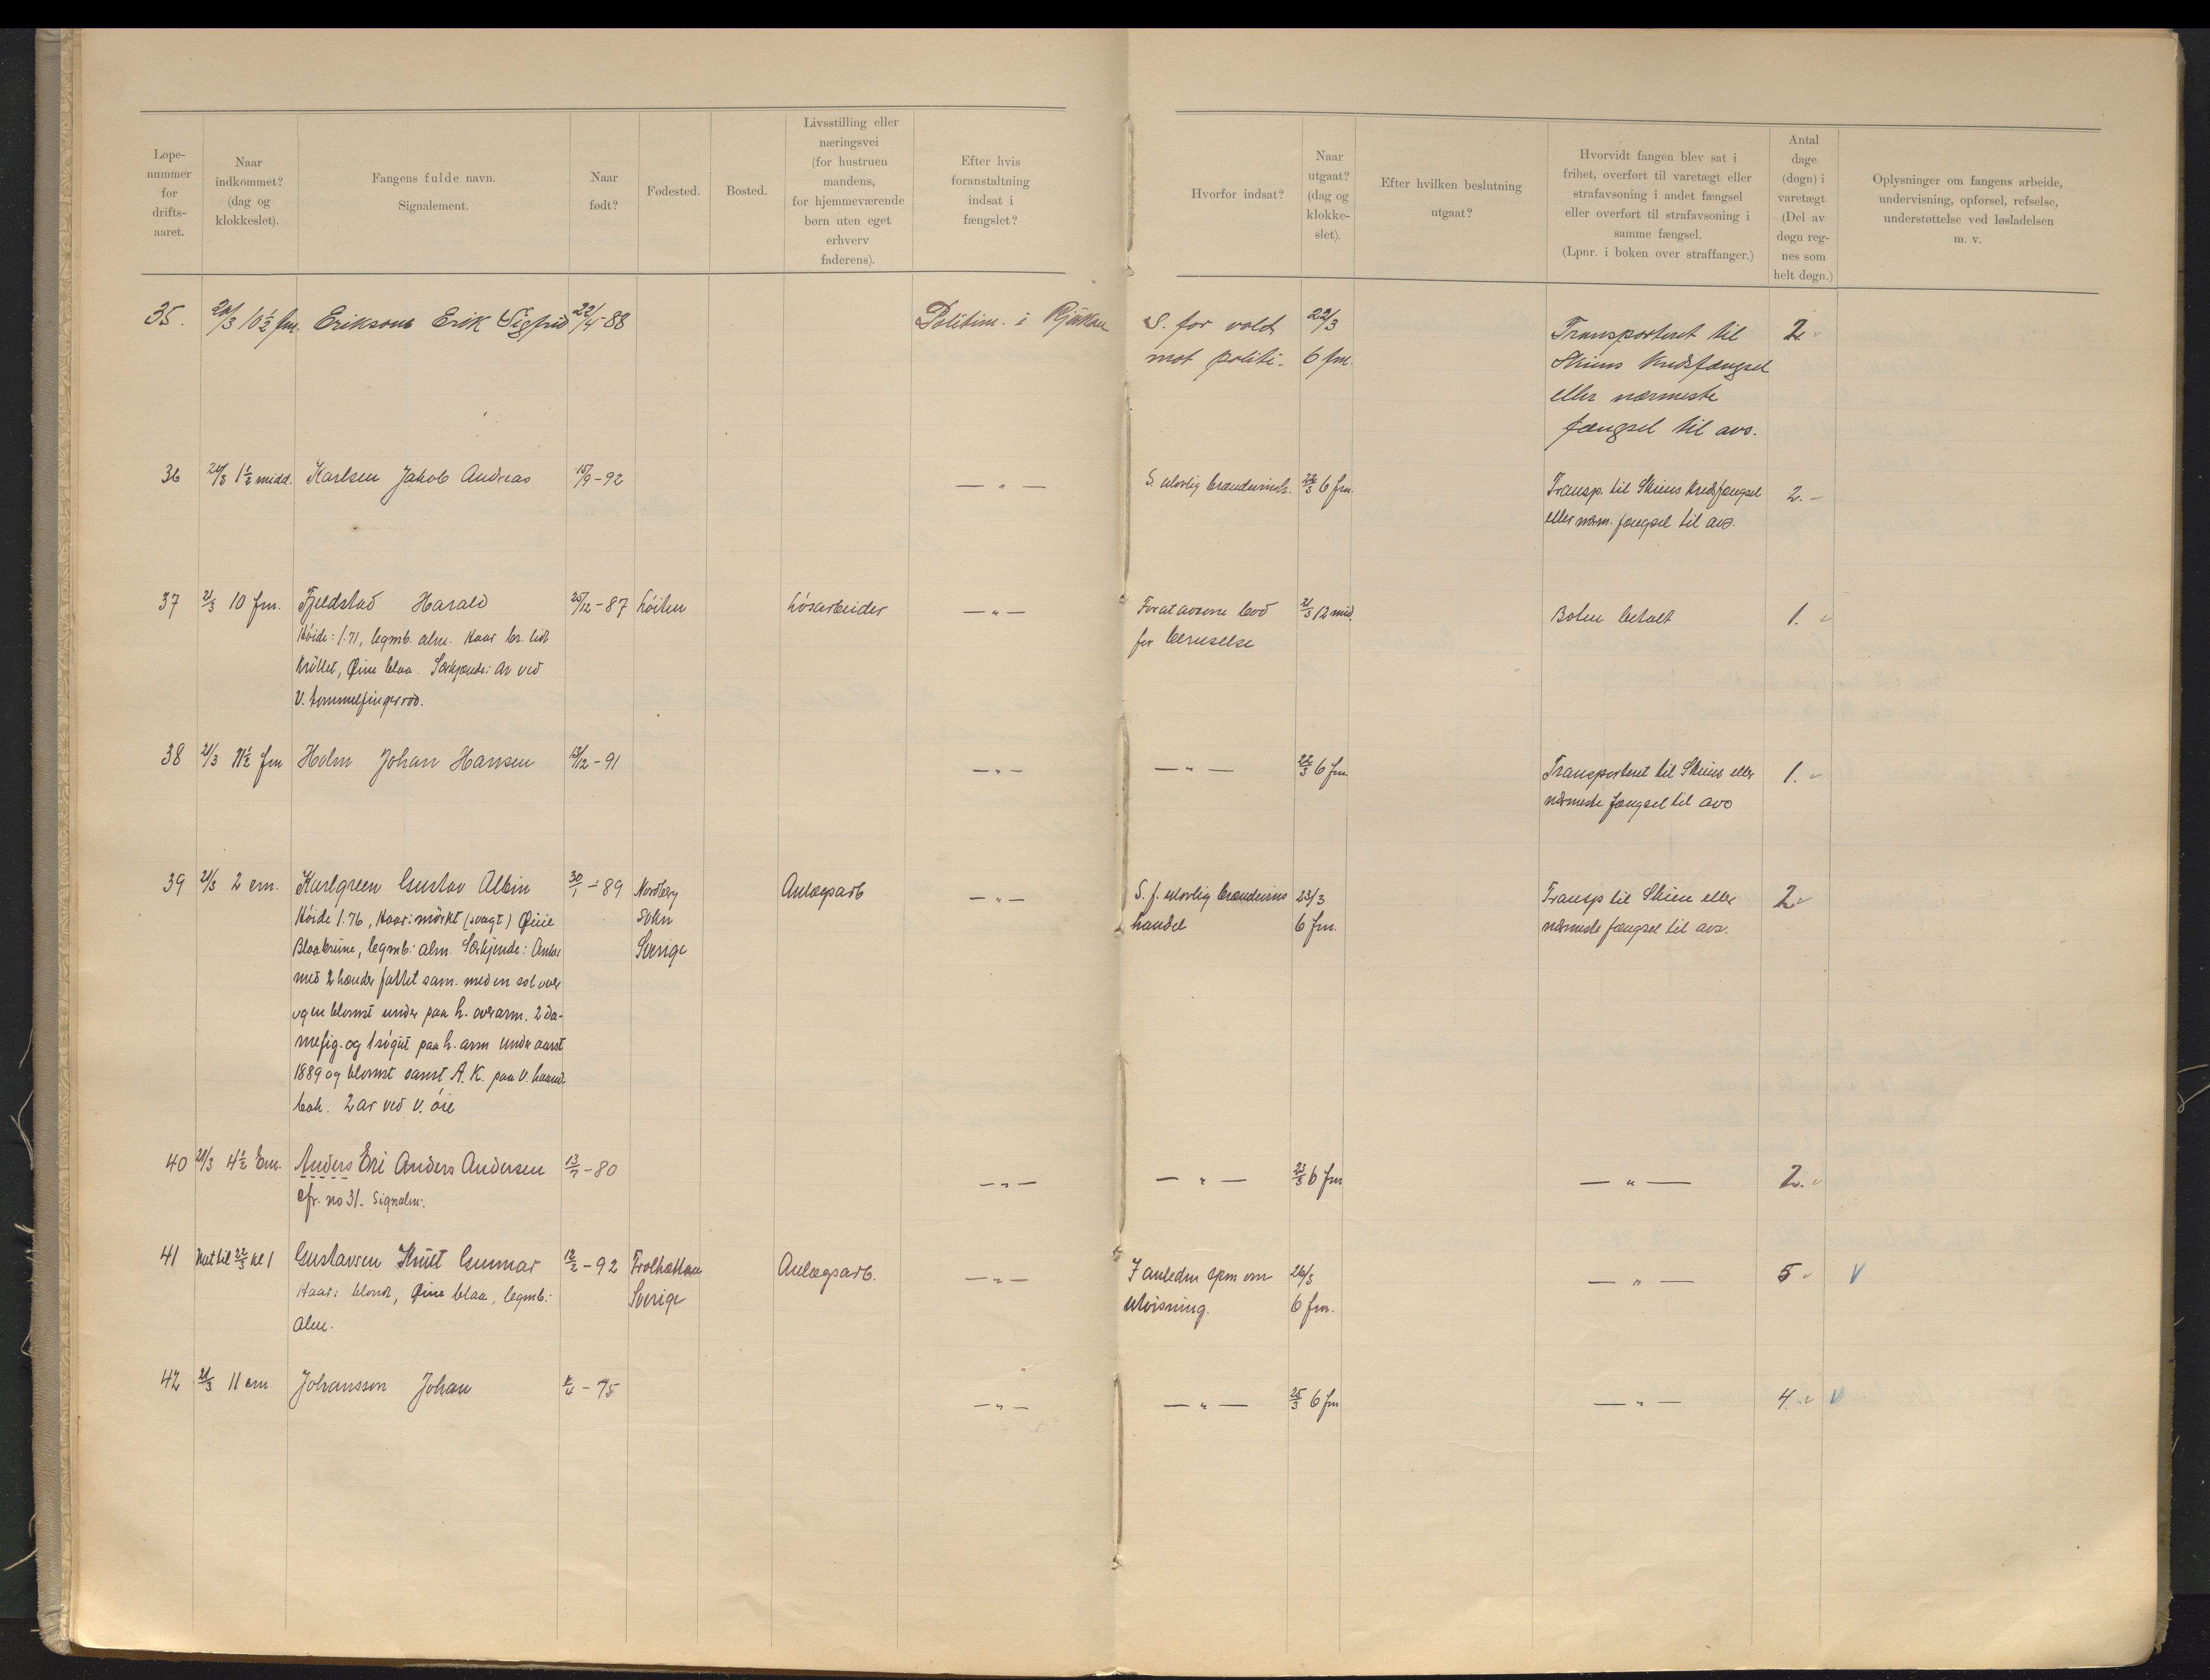 Løpe-
nummer
for
drifts-
aaret.
Naar
indkommet?
(dag og
klokkeslet).
Fangens fulde navn.
Signalement.
Naar
født?
Fødested.
Bosted.
Livsstilling eller
næringsvei
(for hustruen
mandens,
for hjemmeværende
børn uten eget
erhverv
faderens).
Efter hvis
foranstaltning
indsat i
fængslet?
Hvorfor indsat?
Naar
utgaat?
(dag og
klokke-
slet).
Efter hvilken beslutning
utgaat?
Hvorvidt fangen blev sat i
frihet, overført til varetægt eller
strafavsoning i andet fængsel
eller overført til strafavsoning i
samme fængsel.
(Lpnr. i boken over straffanger.)
Antal
dage
(døgn) i
varetægt
(Del av
døgn reg-
nes som
helt døgn.)
Oplysninger om fangens arbeide,
undervisning, opførsel, refselse,
understøttelse ved løsladelsen
m. v.
35. /3 10 ½ fm. Eriksons Erik Sigfrid 22/4-88 Politim. i Rjukan S. for vold 22/3 Transporteret til 2
mot politi. 6 fm. Skiens Kredsfængsel
eller nærmeste
fængsel til avs.
36 /3 1½ midd. Karlsen Jakob Andreas 15/9-92 — " — S. ulovlig brændevinsh. 22/3 6 fm. Transp. til Skiens Kredsfængsel 2.-
eller nærm. fængsel til avs.
37 21/3 10 fm. Fjeldstad Harald 25/12-87 Løiten Løsarbeider — " — For at avsone bod 21/3 12 mid. Boten betalt 1.
Høide: 1.71, legmb. alm. Haar br. lidt for beruselse
krøllet, Øine blaa. Særkjende: Ar ved
v. tommelfingerrod.
38 21/3 11½ fm Holm Johan Hansen 13/12-91 — " — — " — 22/3 6 fm Transporteret til Skiens eller 1.
nærmeste fængsel til avs
39 21/3 2 em. Karlgreen Gustav Albin 30/1-89 Nordberg Anlægsarb — " — S. f. ulovlig brændevins 23/3 Transp til Skien eller 2
Høide 1.76, Haar: mörkt (svagt) Øine sokn handel 6 fm. nærmeste fængsel til avs.
Blaabrune, legmb: alm. Særkjende: Anker Sverige
med 2 hænder fattet sam. med en sol over
og en blomst under paa h. overarm. 2 da-
mefig. og 1 paa h. arm under aaret
1889 og blomst samt A. K. paa v. haand-
bak. 2 ar ved v. øie
40 21/3 4½ Em. Anders Eri Anders Andersen 13/7-80 — " — — " — 23/3 6 fm — " — 2.
cfr. no 31. Signalm:
41 Nat til 22/3 kl 1 Gustavsen Knut Gunnar 12/2-92 Trolhættan Anlægsarb. — " — I anledn spm om 26/3 — " — 5 V
Haar: blondt, Øine blaa, legmb: Sverige utvisning. 6 fm.
alm.
42 21/3 11 em Johansson Johan -75 — " — — " — 25/3 6 fm — " — 4. V